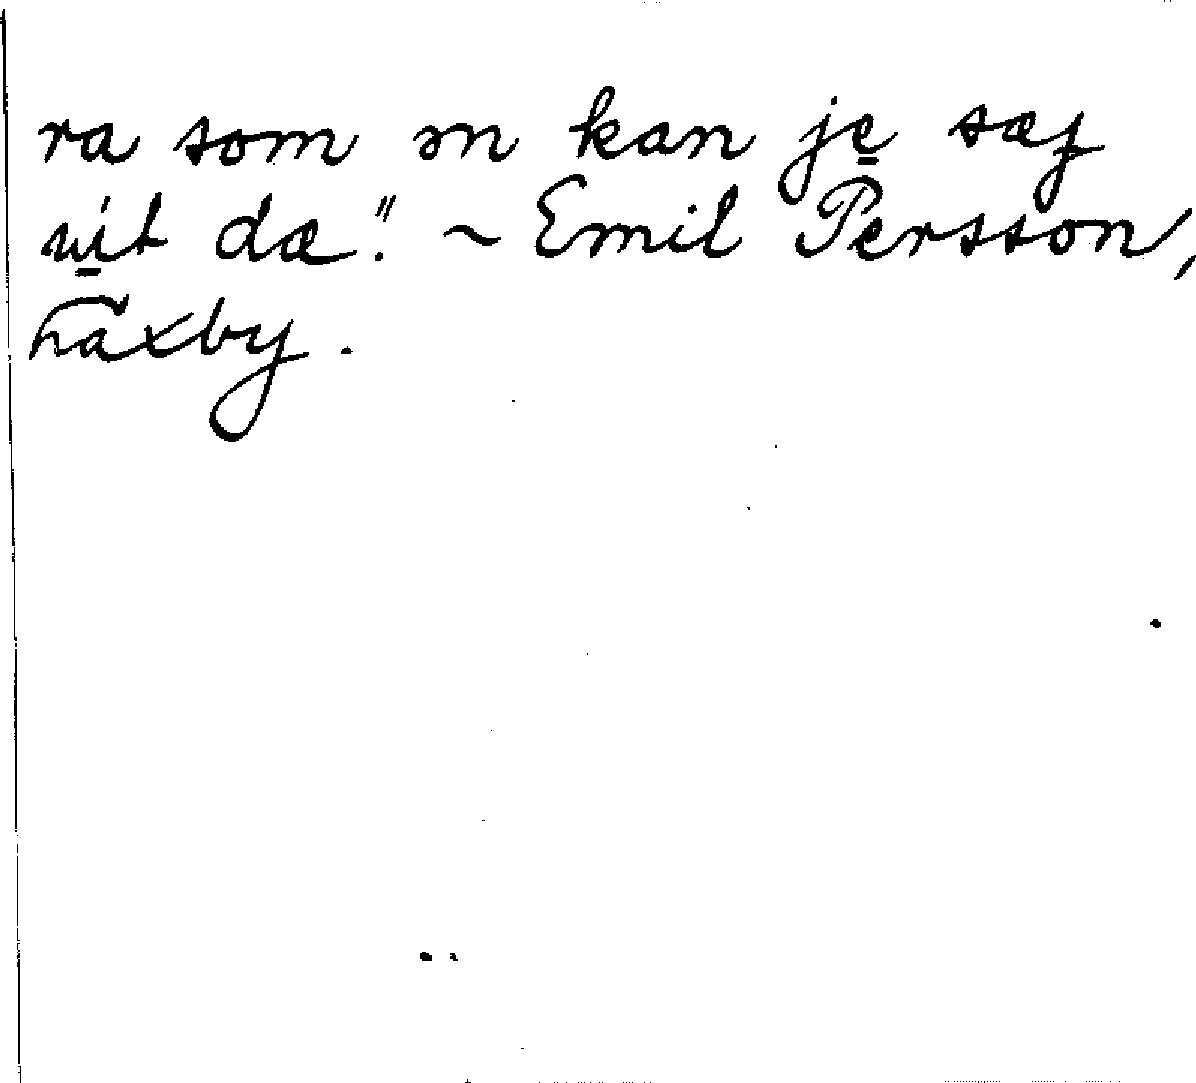 ra som ən kan je̲ sæj
u̲it dæ." ~ Emil Persson,
Haxby.